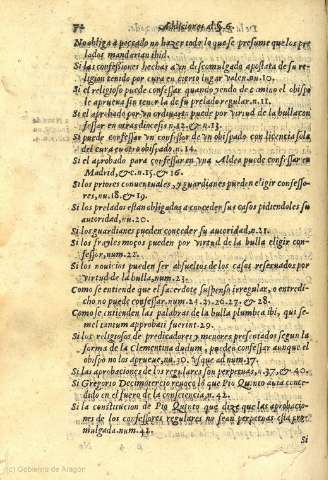 72 Addiciones al §. 6.
No obliga a peccado no hazer todo lo que se presume que los per
lados mandarian ibid.
Si las confessiones hechas a vn descomulgado apostata de su re-
ligion tenido por cura en cierto lugar valen. nu. 10.
Si el religioso puede confessar quando yendo de camino el obispo
le aprueua sin tener la de su prelado regular. n. 11.
Si el aprobado por vn ordinario puede por virtud de la bulla con
fessar en otras diocesis n. 12. & n. 13.
Si puede confessar vn confessor de vn obispado con licentia sola
del cura en otro obispado. n. 14.
Si el aprobado para confessar en vna Aldea puede confessar en
Madrid, &c. n. 15. & 16.
Si los priores conuentuales, y guardianes pueden eligir confesso-
res, nu. 18. & 19.
Si los prelados estan obligados a conceder sus casos pidiendoles su
autoridad, nu. 20.
Si los guardianes pueden conceder su autoridad, n. 21.
Si los frayles moços pueden por virtud de la bulla eligir con-
fessor, num. 22.
Si los nouicios pueden ser absueltos de los casos reseruados por
virtud de la bulla, num. 23.
Como se entiende que el sacerdote suspenso irregular, o entredi-
cho no puede confessar. num. 24. 25. 26. 27. & 28.
Como se intienden las palabras de la bulla plumbea ibi, qui se-
mel tantum approbati fuerint. 29.
Si los religiosos de predicadores y menores presentados segun la
forma de la Clementina dudum, pueden confessar aunque el
obispo no los aprueue, nu. 30. vsque ad num. 37.
Si las aprobaciones de los regulares son perpetuas, n. 37. & 40.
Si Gregorio Decimotercio reuocò lo que Pio Quinto auia conce-
dido en el fuero de la consciencia, n. 42.
Si la constitucion de Pio Quinto que dize que las aprobacio-
nes de los confessores regulares no sean perpetuas està pro-
mulgada. num. 42.
Si
(c) Gobierno de Aragón